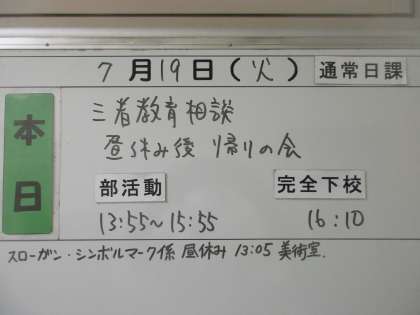 7月19日(火) 通常日課
本日
三者教育相談
昼休み後 帰りの会
部活動 完全下校
13:55〜15:55 16:10
スローガン・シンボルマーク係 昼休み 13:05 美術室.